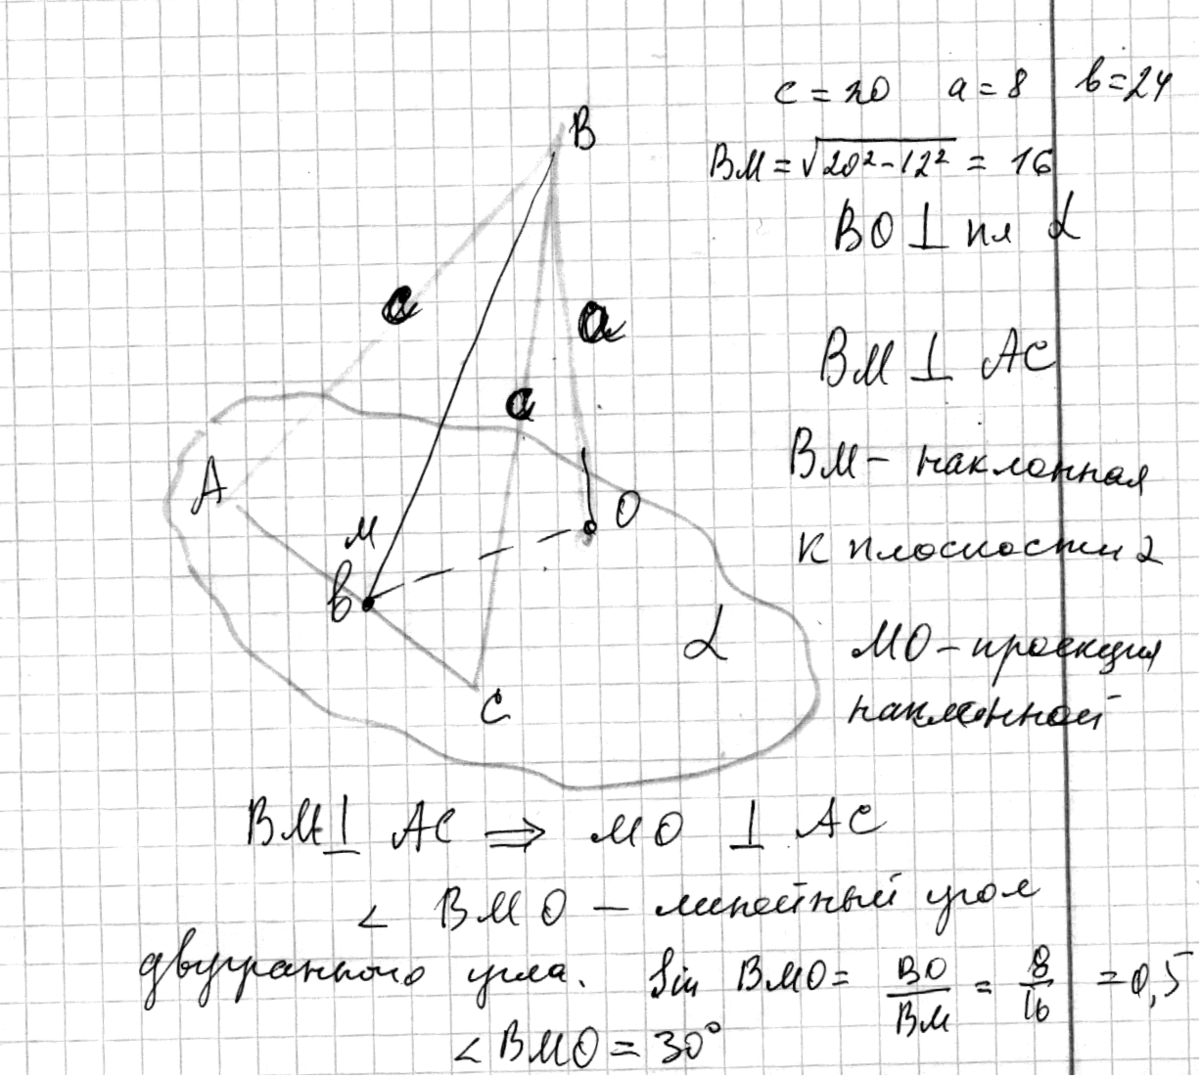 c = 20 a = 8 b = 24
B
BM = √20² - 12² = 16
BO ⊥ пл α
c
a
c
BM ⊥ AC
A
BM - наклонная
M
O
к плоскости α
b
α
MO - проекция
C
наклонной
BM ⊥ AC ⇒ MO ⊥ AC
∠ BMO - линейный угол
двугранного угла. Sin BMO = BO/BM = 8/16 = 0,5
∠ BMO = 30°